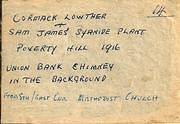 14
CORMACK LOWTHER
+
SAM JAMES SYANIDE PLANT
POVERTY HILL 1916
UNION BANK CHIMNEY
IN THE BACKGROUND
METHODIST CHURCH